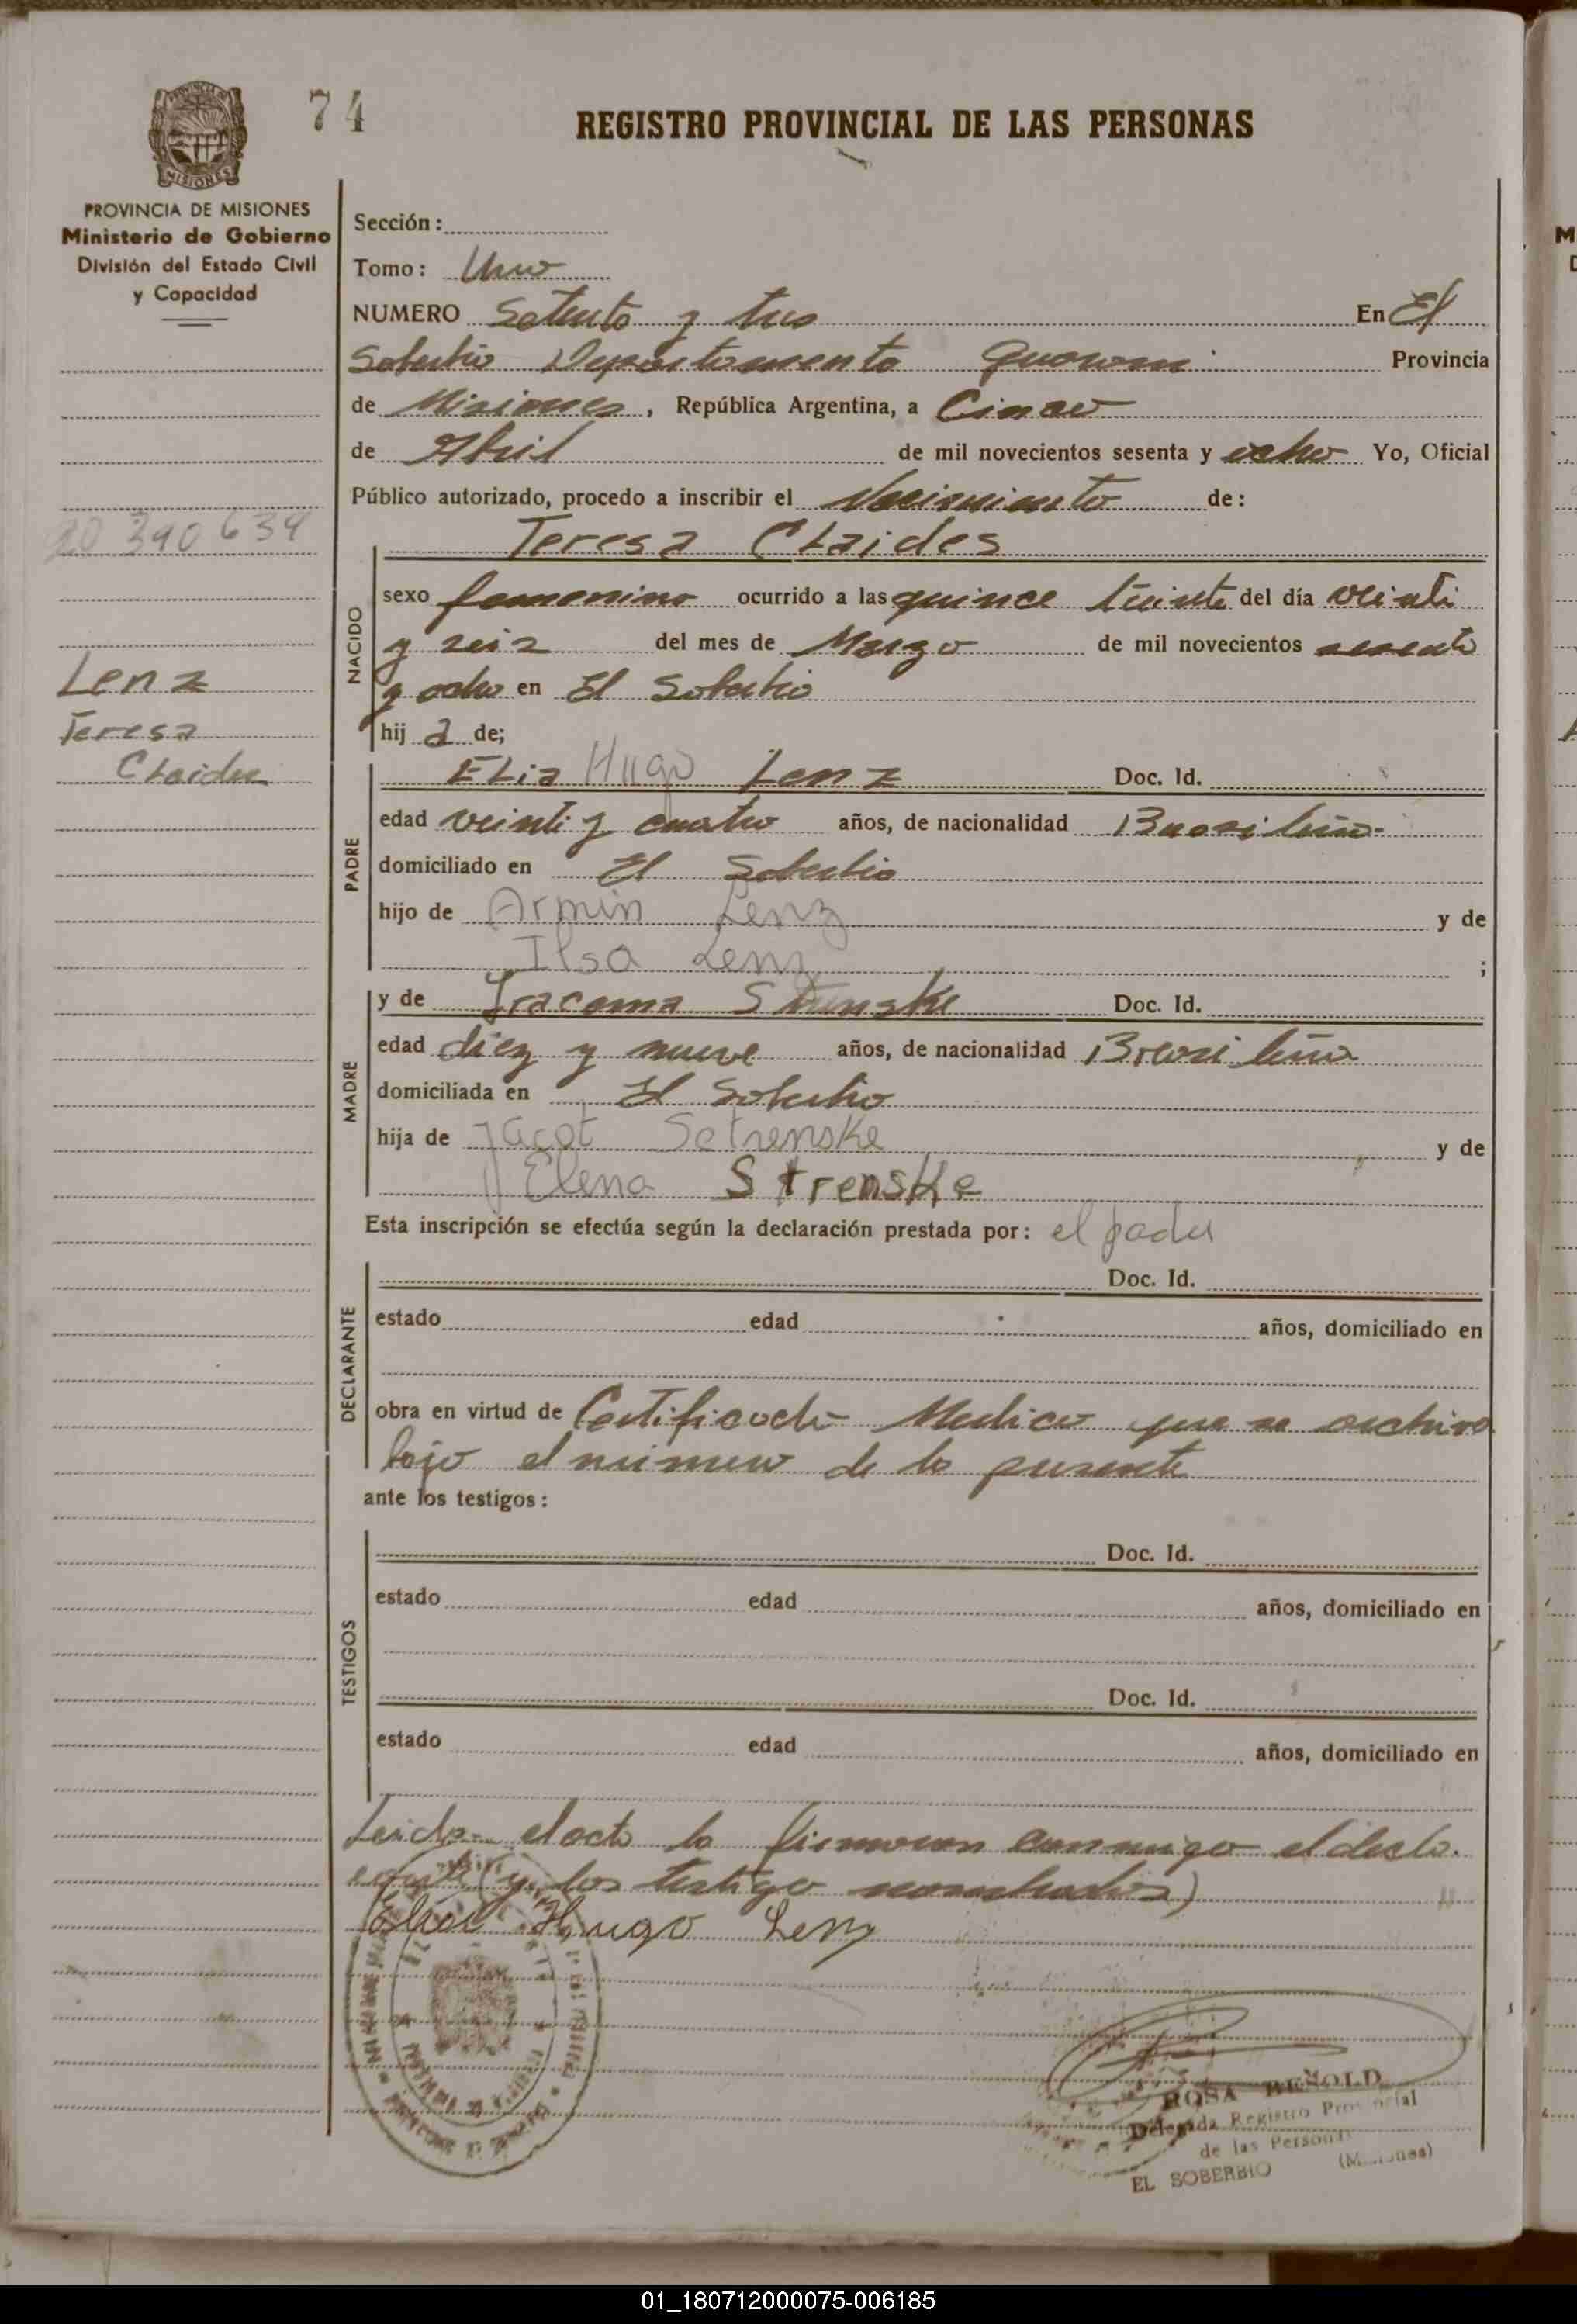 74
REGISTRO PROVINCIAL DE LAS PERSONAS
PROVINCIA DE MISIONES
Ministerio de Gobierno
División del Estado Civil
y Capacidad
20 390 639
Lenz
Teresa
Claides
Sección:
Tomo: Uno
NUMERO Setenta y tres En El
Soberbio Departamento Guarani Provincia
de Misiones, República Argentina, a Cinco
de Abril de mil novecientos sesenta y ocho Yo, Oficial
Público autorizado, procedo a inscribir el Nacimiento de:
Teresa Claides
NACIDO
sexo femenino ocurrido a las quince treinta del día veinti
y seis del mes de Marzo de mil novecientos sesenta
y ocho en El Soberbio
hij a de;
PADRE
Elia Hugo Lenz Doc. Id.
edad veinti y cuatro años, de nacionalidad Brasileña
domiciliado en El Soberbio
hijo de Armin Lenz y de
Ilsa Lenz ;
MADRE
y de Iracema Strenske Doc. Id.
edad diez y nueve años, de nacionalidad Brasileña
domiciliada en El Soberbio
hija de Jacot Setrenske y de
Elena Strenske
Esta inscripción se efectúa según la declaración prestada por: el padre
DECLARANTE
Doc. Id.
estado edad años, domiciliado en
obra en virtud de Certificado Medico que se archiva
bajo el numero de la presente
ante los testigos:
TESTIGOS
Doc. Id.
estado edad años, domiciliado en
Doc. Id.
estado edad años, domiciliado en
Leida el acta la firmaron conmigo el decla.
y los testigo nombrados)
Elias Hugo Lenz
ROSA BENOLD
Delegada Registro Provincial
de las Personas
EL SOBERBIO (Misiones)
01_180712000075-006185